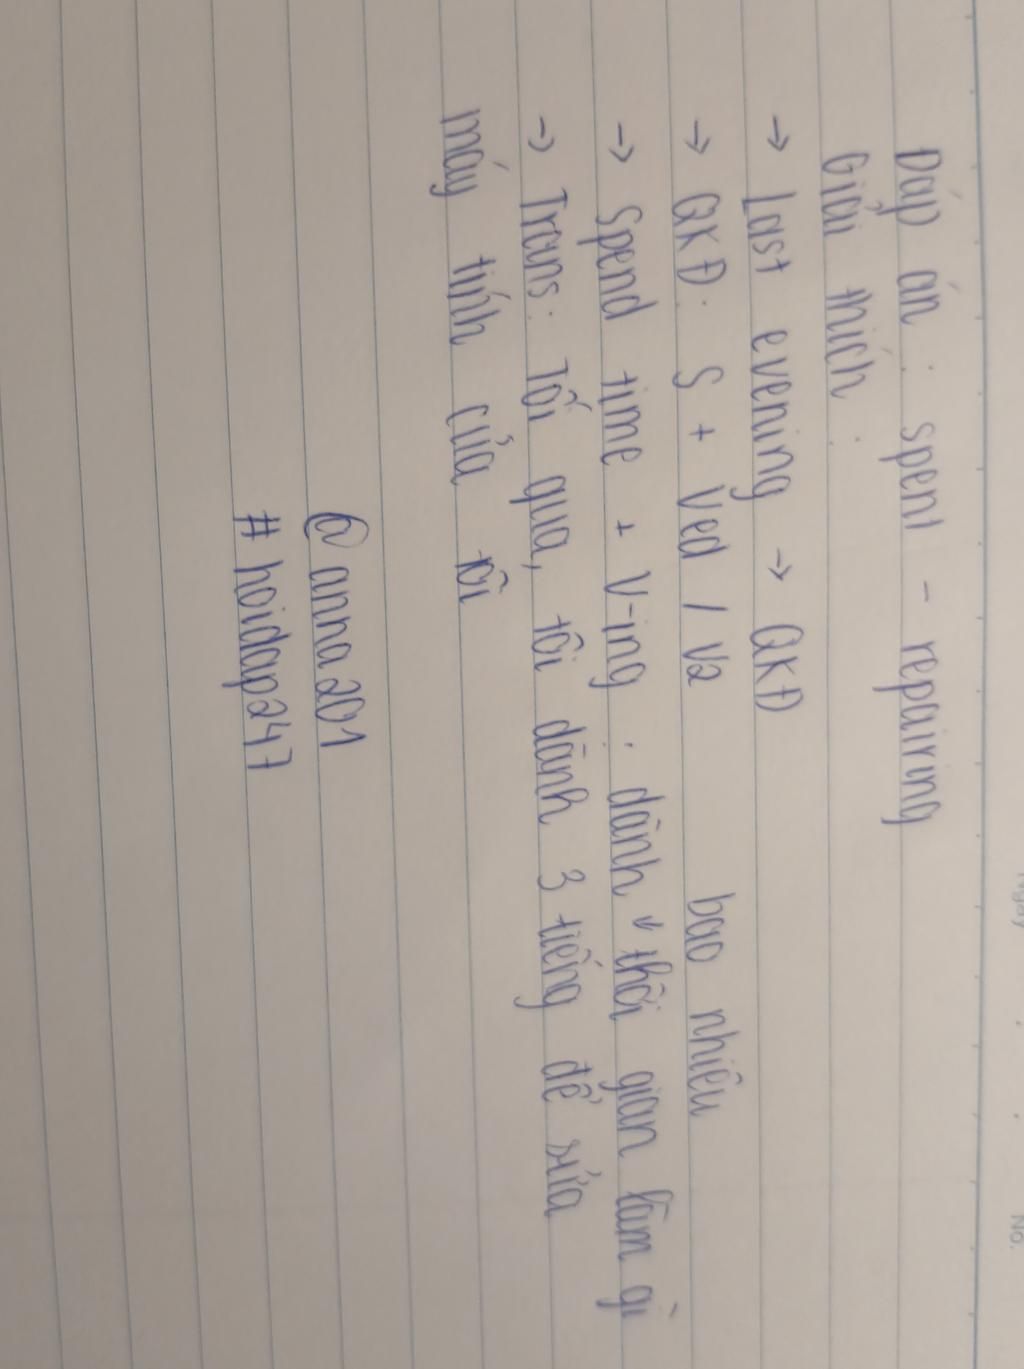 Ngày
No.
Đáp án : spent - repairing
Giải thích :
→ Last evening → QKĐ
→ QKĐ: S + Ved / V2
bao nhiêu
→ Spend time + V-ing : dành thời gian làm gì
→ Trans: Tối qua, tôi dành 3 tiếng để sửa
máy tính của tôi
@anna2091
#hoidap247